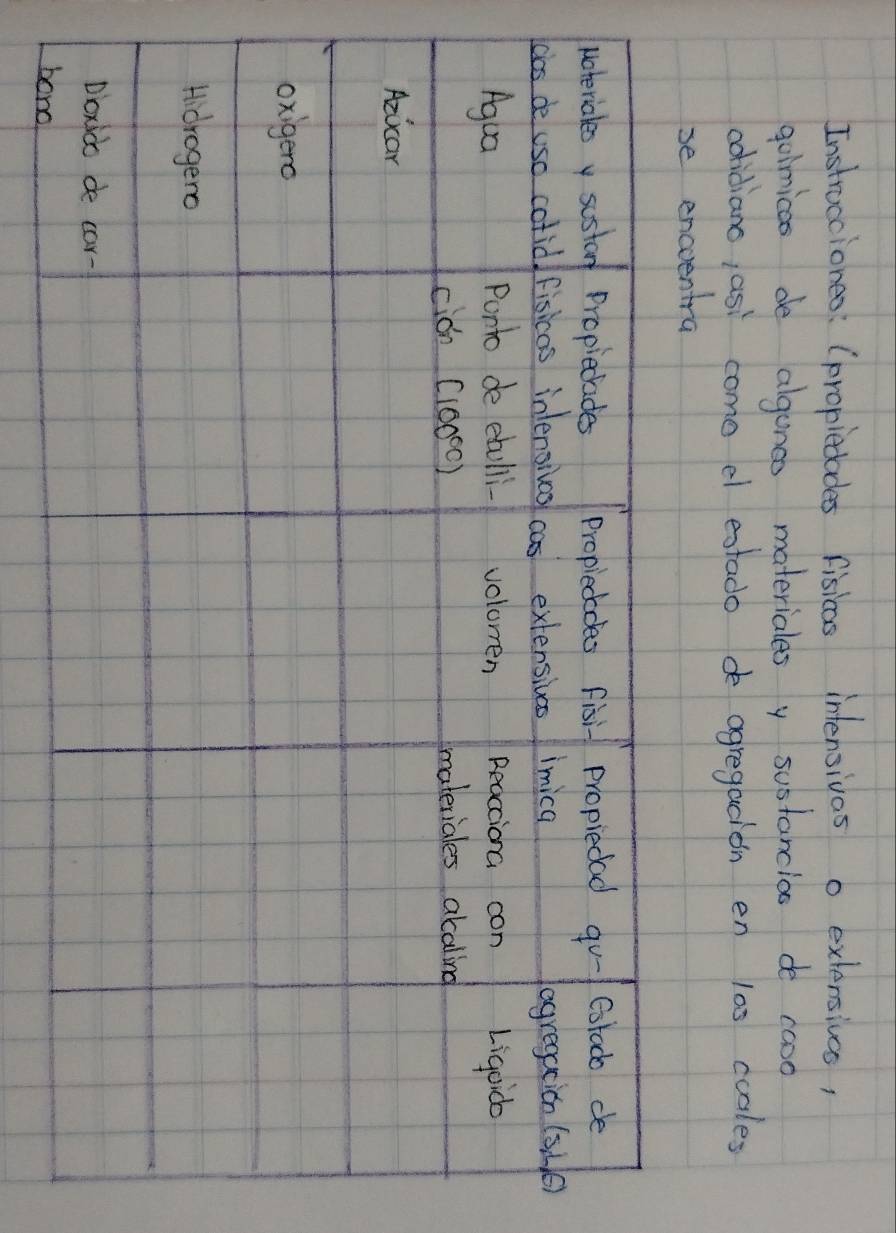 Instrucciones: (propiedades físicas intensivas o extensivas,
químicas de algunos materiales y sustancias de caso
cotidiano, así como el estado de agregación en los cuales
se encuentra
Materiales y sustan Propiedades Propiedades físi- Propiedad qu- Estado de
cias de uso cotid. físicas intensivas cas extensivas ímica agregación (S,L,G)
Agua Punto de ebulli- volumen Reacciona con Liquido
ción (100°C) materiales alcalino
Azúcar
oxígeno
Hidrogeno
Dioxido de car-
bono